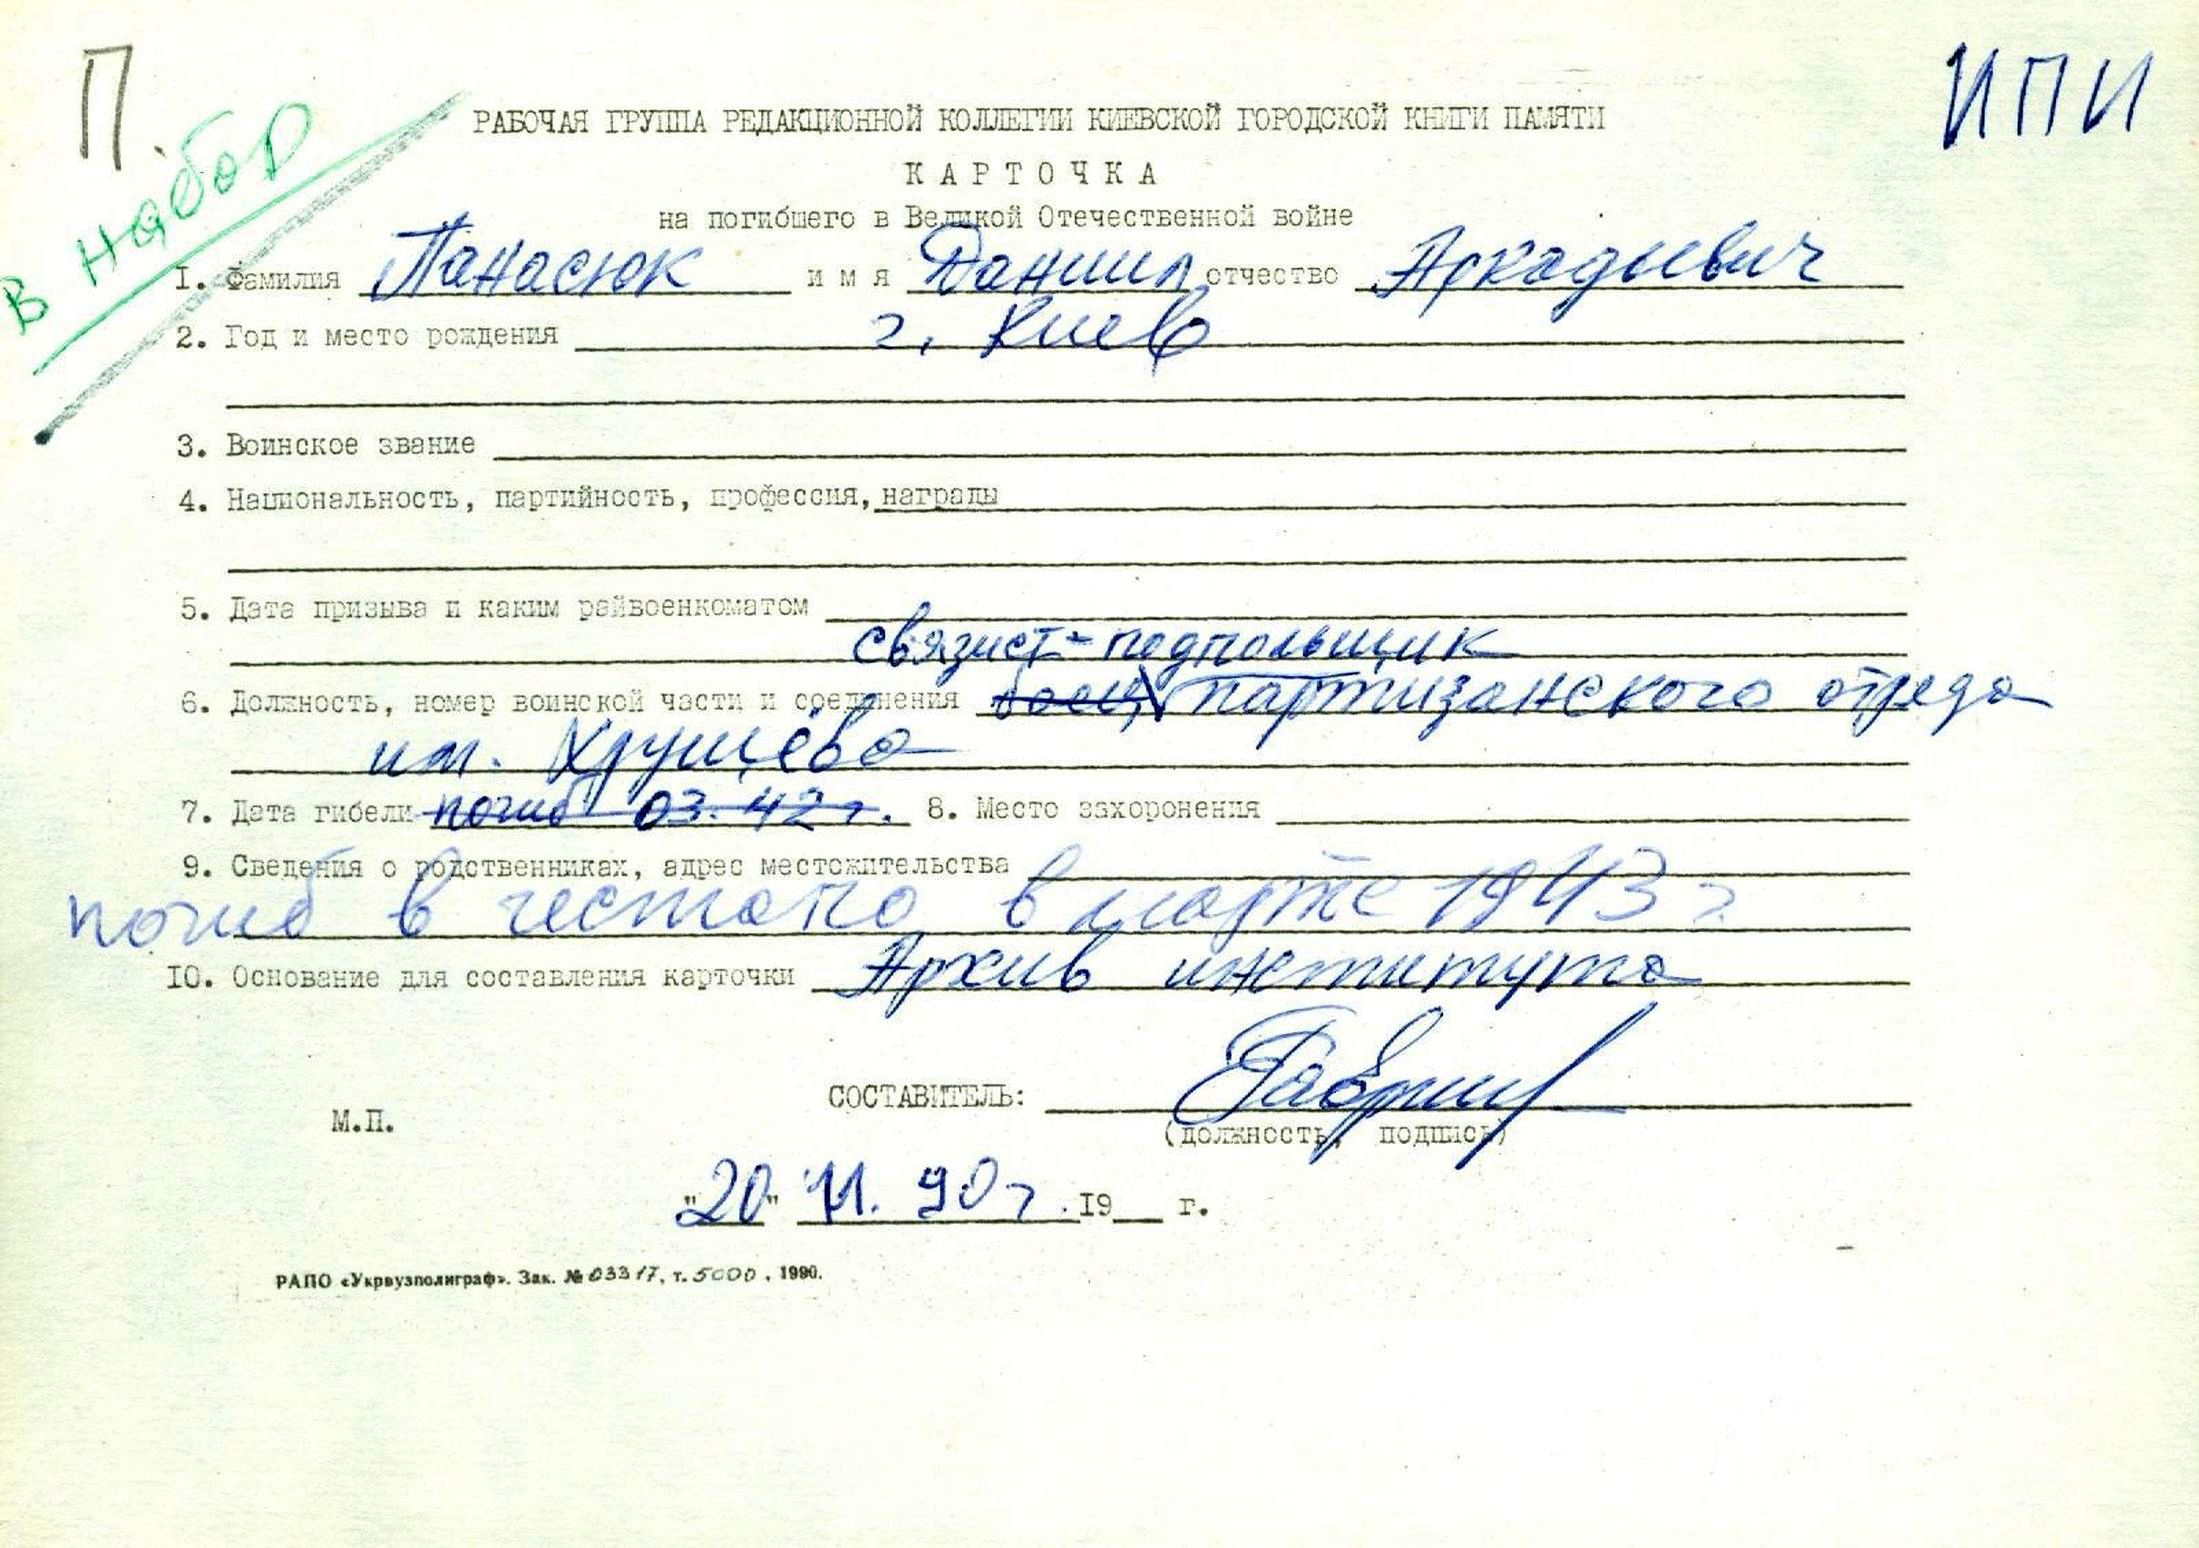 П.
ИПИ
В набор
РАБОЧАЯ ГРУППА РЕДАКЦИОННОЙ КОЛЛЕГИИ КИЕВСКОЙ ГОРОДСКОЙ КНИГИ ПАМЯТИ
КАРТОЧКА
на погибшего в Великой Отечественной войне
1. Фамилия Панасюк имя Даниил отчество Аркадьевич
2. Год и место рождения г. Киев
3. Воинское звание
4. Национальность, партийность, профессия, награды
5. Дата призыва и каким райвоенкоматом
связист-подпольщик
6. Должность, номер воинской части и соединения боец партизанского отряда
им. Хрущёва
7. Дата гибели погиб 03.42 г. 8. Место захоронения
9. Сведения о родственниках, адрес местожительства
погиб в гестапо в марте 1943 г
10. Основание для составления карточки Архив института
СОСТАВИТЕЛЬ:
М.П.
(должность, подпись)
"20" 11. 90 г. 19__ г.
РАПО «Укрвузполиграф». Зак. № 03317, т. 5000, 1990.